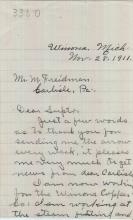 3360
Winona, Mich.
Nov. 28. 1911.
Mr. M. Freidman
Carlisle, Pa.
Dear Supt:
Just a few words
as to thank you for
sending me the arrow
every week, it pleases
me very much to get
news from dear Carlisle
I am now working
for the Winona Copper
Co. I am working at
the steam